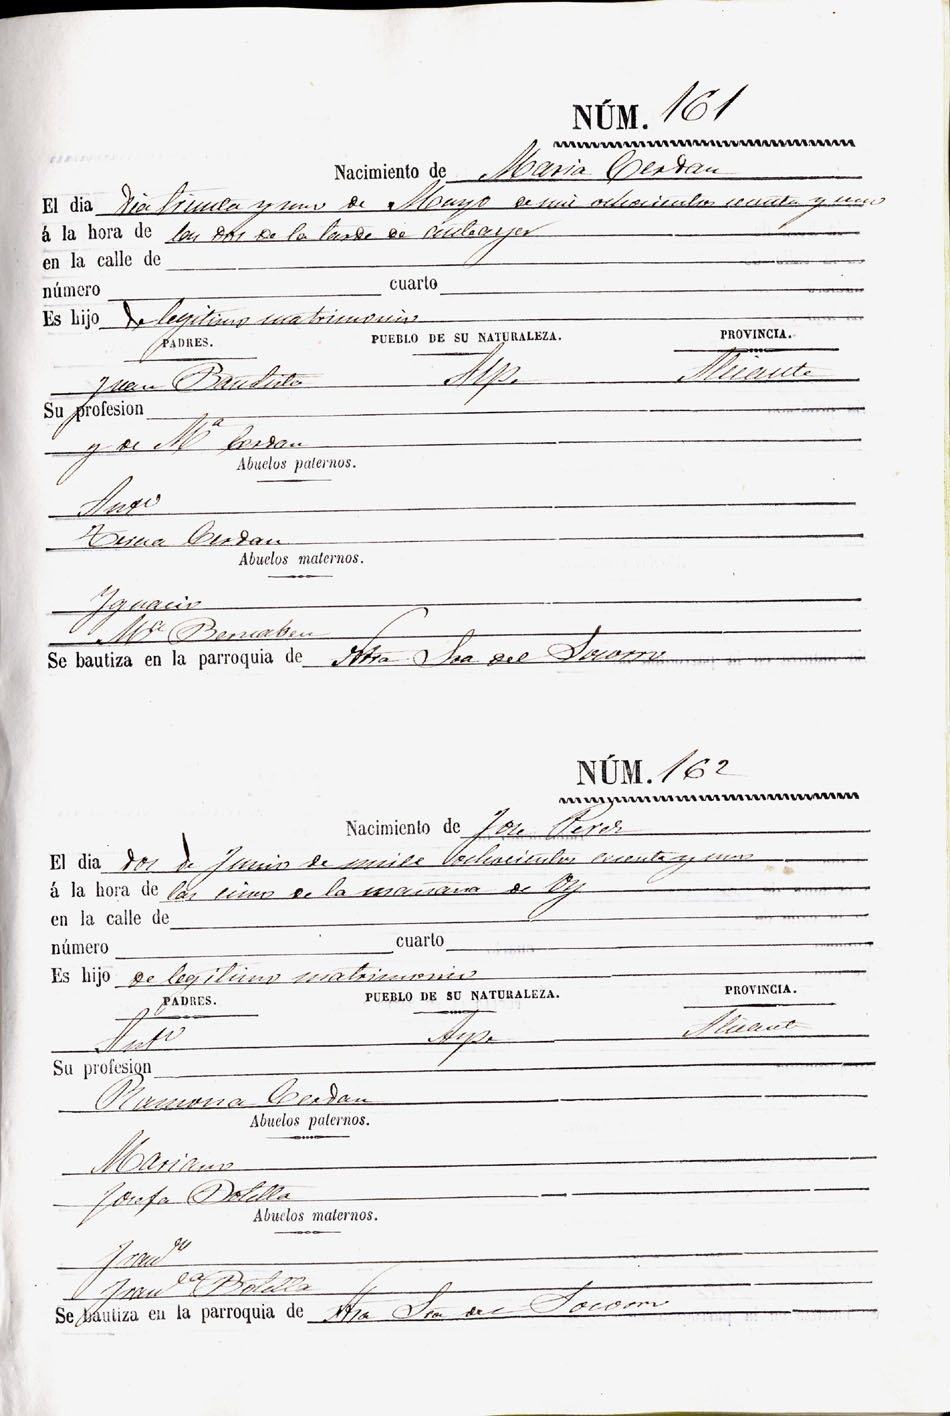 NÚM. 161
Nacimiento de Maria Cerdan
El dia dia treinta y uno de Mayo de mil ochocientos sesenta y uno
á la hora de las dos de la tarde de anteayer
en la calle de
número cuarto
Es hijo de legitimo matrimonio
PADRES. PUEBLO DE SU NATURALEZA. PROVINCIA.
Juan Bautista Aspe Alicante
Su profesion
y de Mª Cerdan
Abuelos paternos.
Antº
Teresa Cerdan
Abuelos maternos.
Ignacio
Mª Bernabeu
Se bautiza en la parroquia de Ntra Sra del Socorro
NÚM. 162
Nacimiento de Jose Perez
El dia dos de Junio de mil ochocientos sesenta y uno
á la hora de las cinco de la manana de Oy
en la calle de
número cuarto
Es hijo de legitimo matrimonio
PADRES. PUEBLO DE SU NATURALEZA. PROVINCIA.
Antº Aspe Alicante
Su profesion
Ramona Cerdan
Abuelos paternos.
Mariano
Josefa Botella
Abuelos maternos.
Franco
Franca Botella
Se bautiza en la parroquia de Ntra Sra del Socorro